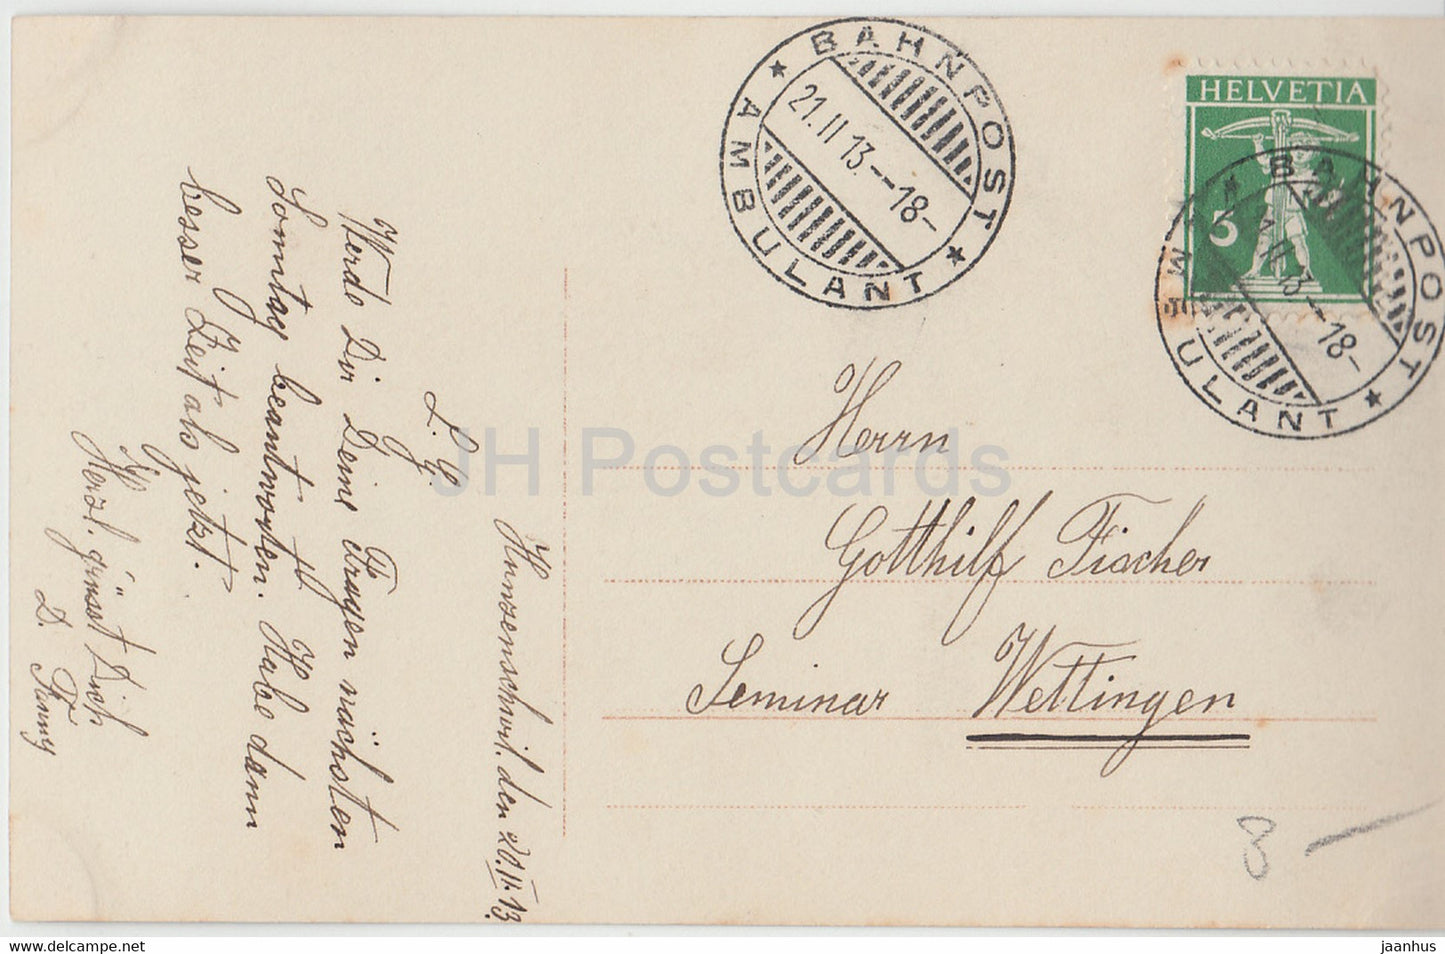 BAHNPOST
AMBULANT
21.II 13.--18-
HELVETIA
5
BAHNPOST
AMBULANT
II 13.--18-
Hunzenschwil. den 20.II.13.
L. G.
Werde Dir Deine Fragen nächsten
Sonntag beantworten. Habe dann
besser Zeit als jetzt.
Herzl. grüsst Dich
D. Fanny
Herrn
Gotthilf Fischer
Seminar Wettingen
3 -
JH Postcards
https://jhpostcards.net
jaanhus